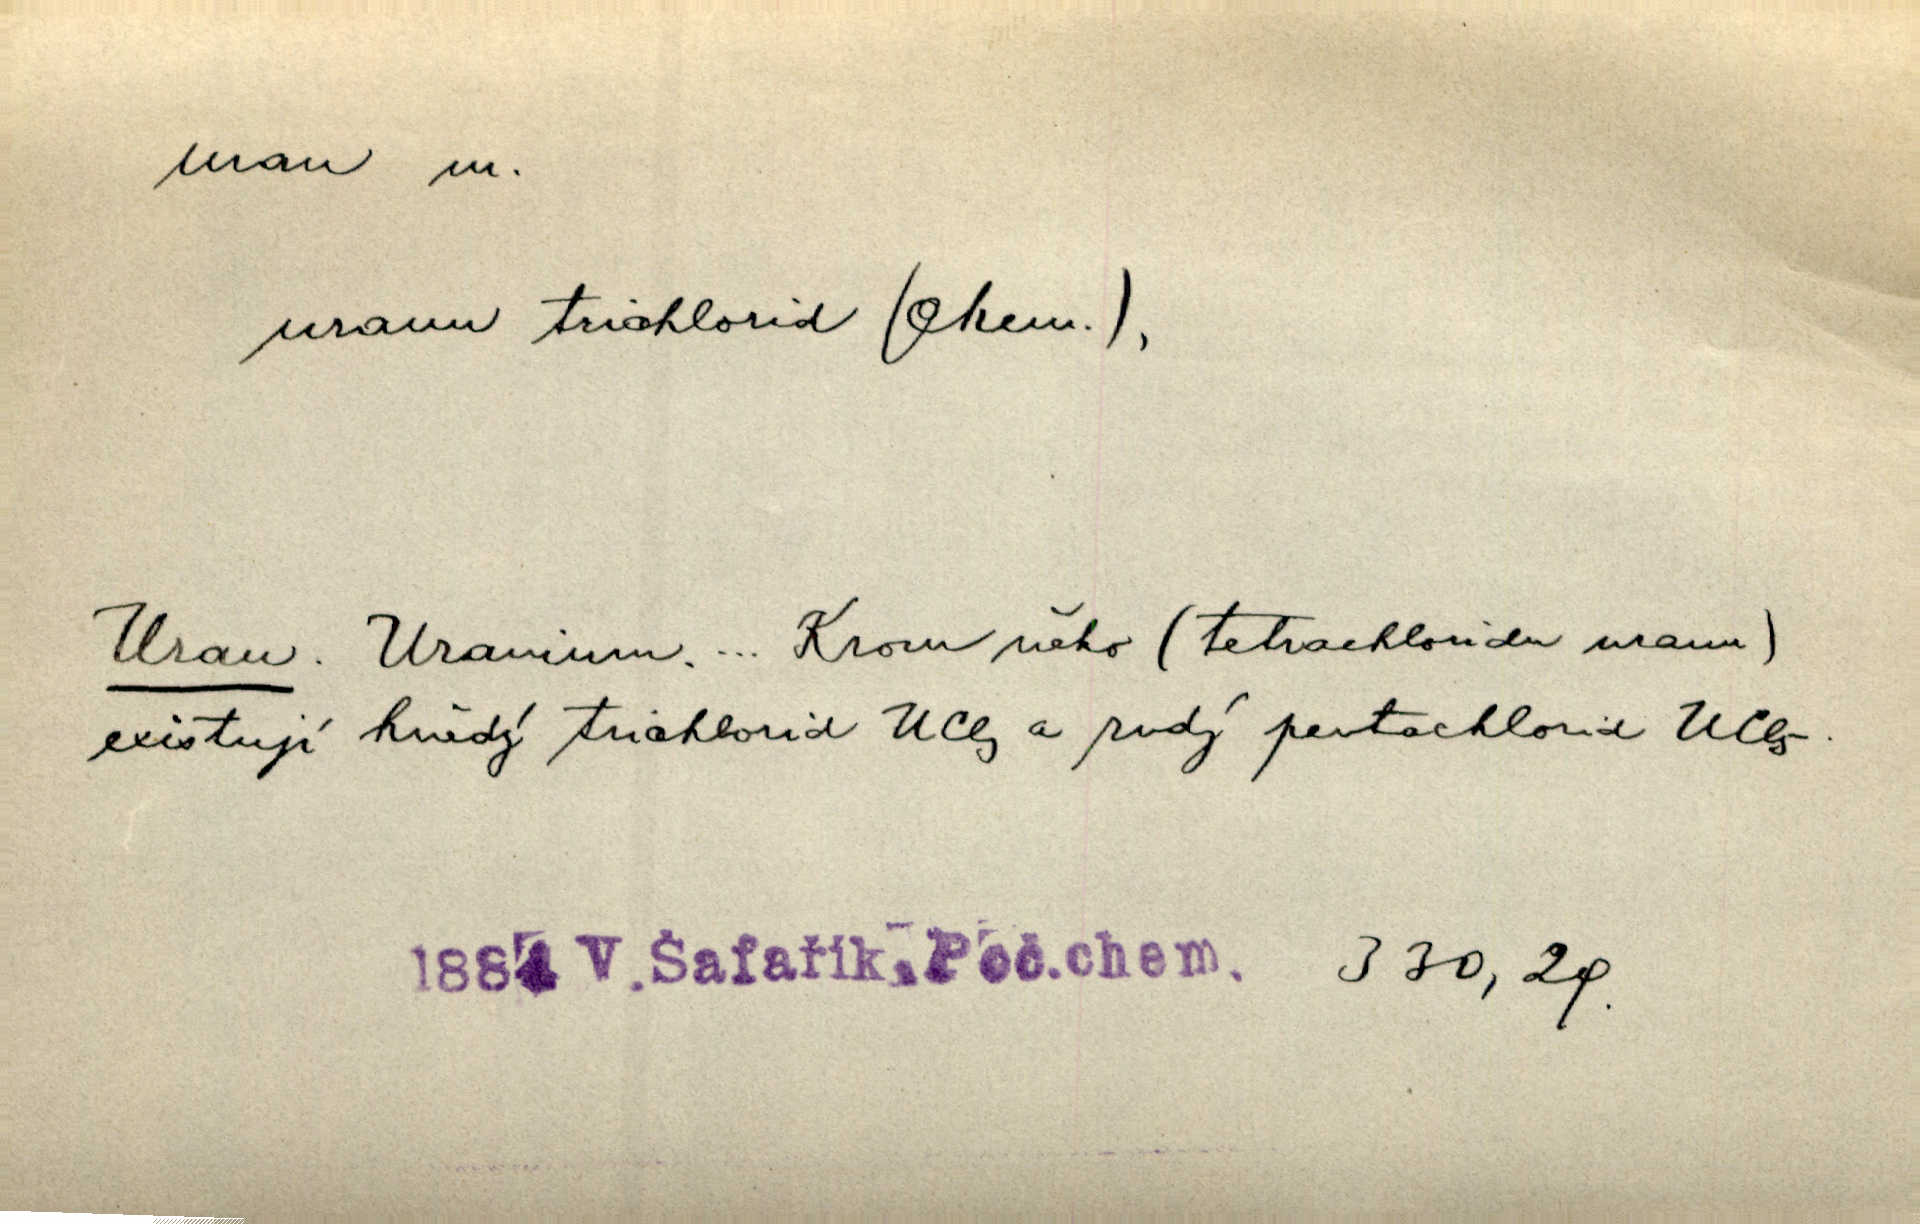 uran m.
uranu trichlorid (Chem.),
Uran. Uranium. ... Krom něho (tetrachloridu uranu)
existují hnědý trichlorid UCl3 a rudý pentachlorid UCl5.
1884 V.Šafařík, Poč.chem. 330, 2φ.